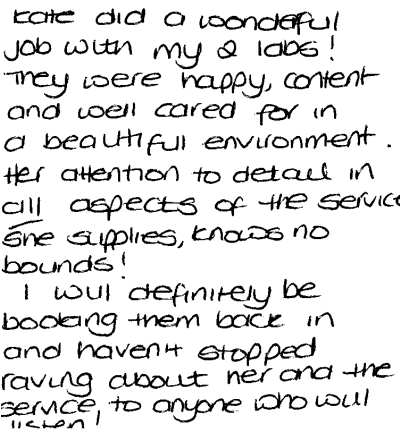 Kate did a wonderful
job with my 2 labs!
They were happy, content
and well cared for in
a beautiful environment.
Her attention to detail in
all aspects of the service
she supplies, knows no
bounds!
I will definitely be
booking them back in
and haven't stopped
raving about her and the
service, to anyone who will
listen!